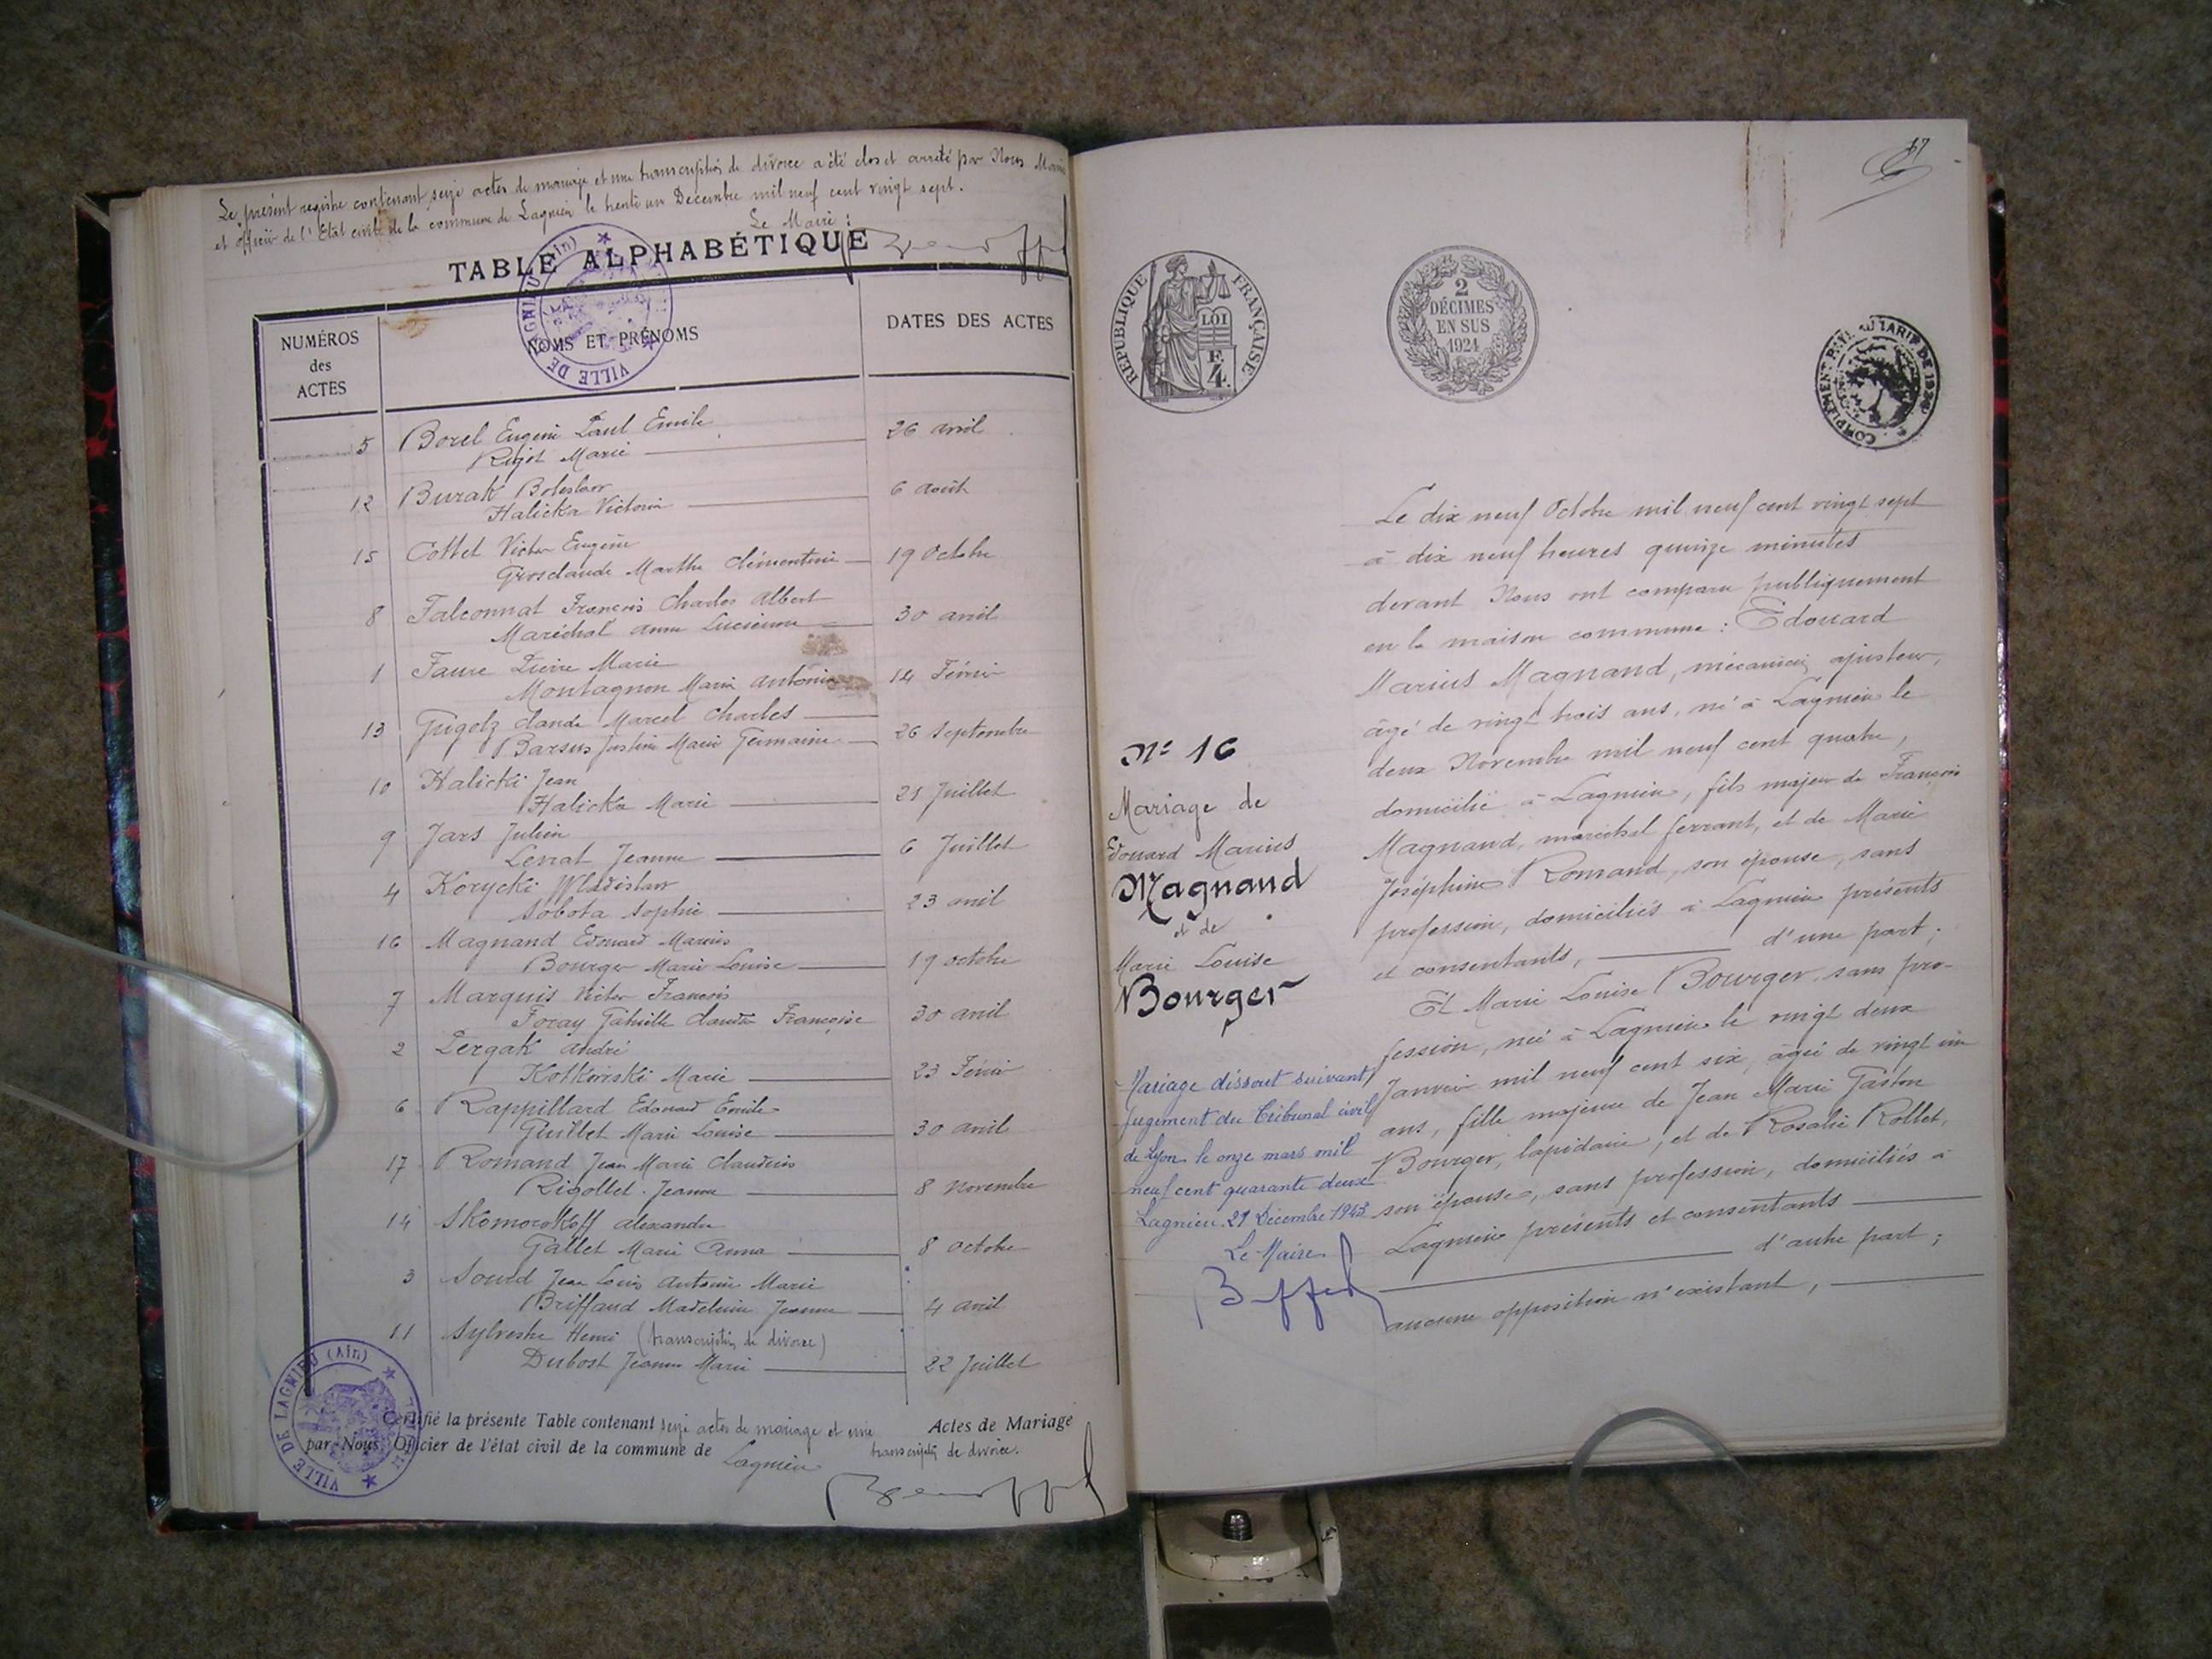 Le présent registre contenant seize actes de mariage et une transcription de divorce a été clos et arrêté par Nous Maire
et officier de l'Etat civil de la commune de Lagnieu le trente un Décembre mil neuf cent vingt sept.
Le Maire :
TABLE ALPHABÉTIQUE
VILLE DE LAGNIEU (Ain)
NUMÉROS des ACTES
NOMS ET PRÉNOMS
DATES DES ACTES
5 Borel Eugène Paul Emile
Rijot Marie 26 avril
12 Burak Boleslaw
Halicka Victoria 6 août
15 Cottet Victor Eugène
Grosclaude Marthe Clémentine 19 Octobre
8 Falconnat François Charles Albert
Maréchal Anne Lucienne 30 avril
1 Faure Pierre Marie
Montagnon Marie Antonia 14 Février
13 Gugolz Claude Marcel Charles
Barsus Justine Marie Germaine 26 Septembre
10 Halicki Jean
Halicka Marie 21 Juillet
9 Jars Julien
Lenat Jeanne 6 Juillet
4 Korycki Wladislaw
Sobota Sophie 23 avril
16 Magnand Edouard Marius
Bourger Marie Louise 19 octobre
7 Marquis Victor François
Foray Gabrielle Claudia Françoise 30 avril
2 Pergak André
Kotkowski Marie 23 Février
6 Rappillard Edouard Emile
Guillet Marie Louise 30 avril
17 Romand Jean Marie Claudius
Rigollet Jeanne 8 Novembre
14 Skomorokoff Alexandre
Gallet Marie Anna 8 octobre
3 Sourd Jean Louis Antoine Marie
Briffaud Madeleine Jeanne 4 avril
11 Sylvestre Henri (transcription de divorce)
Dubost Jeanne Marie 22 Juillet
Certifié la présente Table contenant seize actes de mariage et une Actes de Mariage
par Nous, Officier de l'état civil de la commune de Lagnieu transcription de divorce.
VILLE DE LAGNIEU (Ain)
17
RÉPUBLIQUE FRANÇAISE
LOI
F.
4.
2
DÉCIMES
EN SUS
1924
COMPLÉMENT PAYÉ AU TARIF DE
N° 16
Mariage de
Edouard Marius
Magnand
et de
Marie Louise
Bourger
Mariage dissout suivant
Jugement du Tribunal civil
de Lyon le onze mars mil
neuf cent quarante deux
Lagnieu 21 Décembre 1943
Le Maire
Le dix neuf Octobre mil neuf cent vingt sept
à dix neuf heures quinze minutes
devant Nous ont comparu publiquement
en la maison commune : Edouard
Marius Magnand, mécanicien ajusteur,
âgé de vingt trois ans, né à Lagnieu le
deux Novembre mil neuf cent quatre,
domicilié à Lagnieu, fils majeur de François
Magnand, maréchal ferrant, et de Marie
Joséphine Romand, son épouse, sans
profession, domiciliés à Lagnieu présents
et consentants, d'une part ;
Et Marie Louise Bourger sans pro-
fession, née à Lagnieu le vingt deux
Janvier mil neuf cent six, âgée de vingt un
ans, fille majeure de Jean Marie Gaston
Bourger, lapidaire, et de Rosalie Rollet,
son épouse, sans profession, domiciliés à
Lagnieu présents et consentants
d'autre part ;
aucune opposition n'existant,